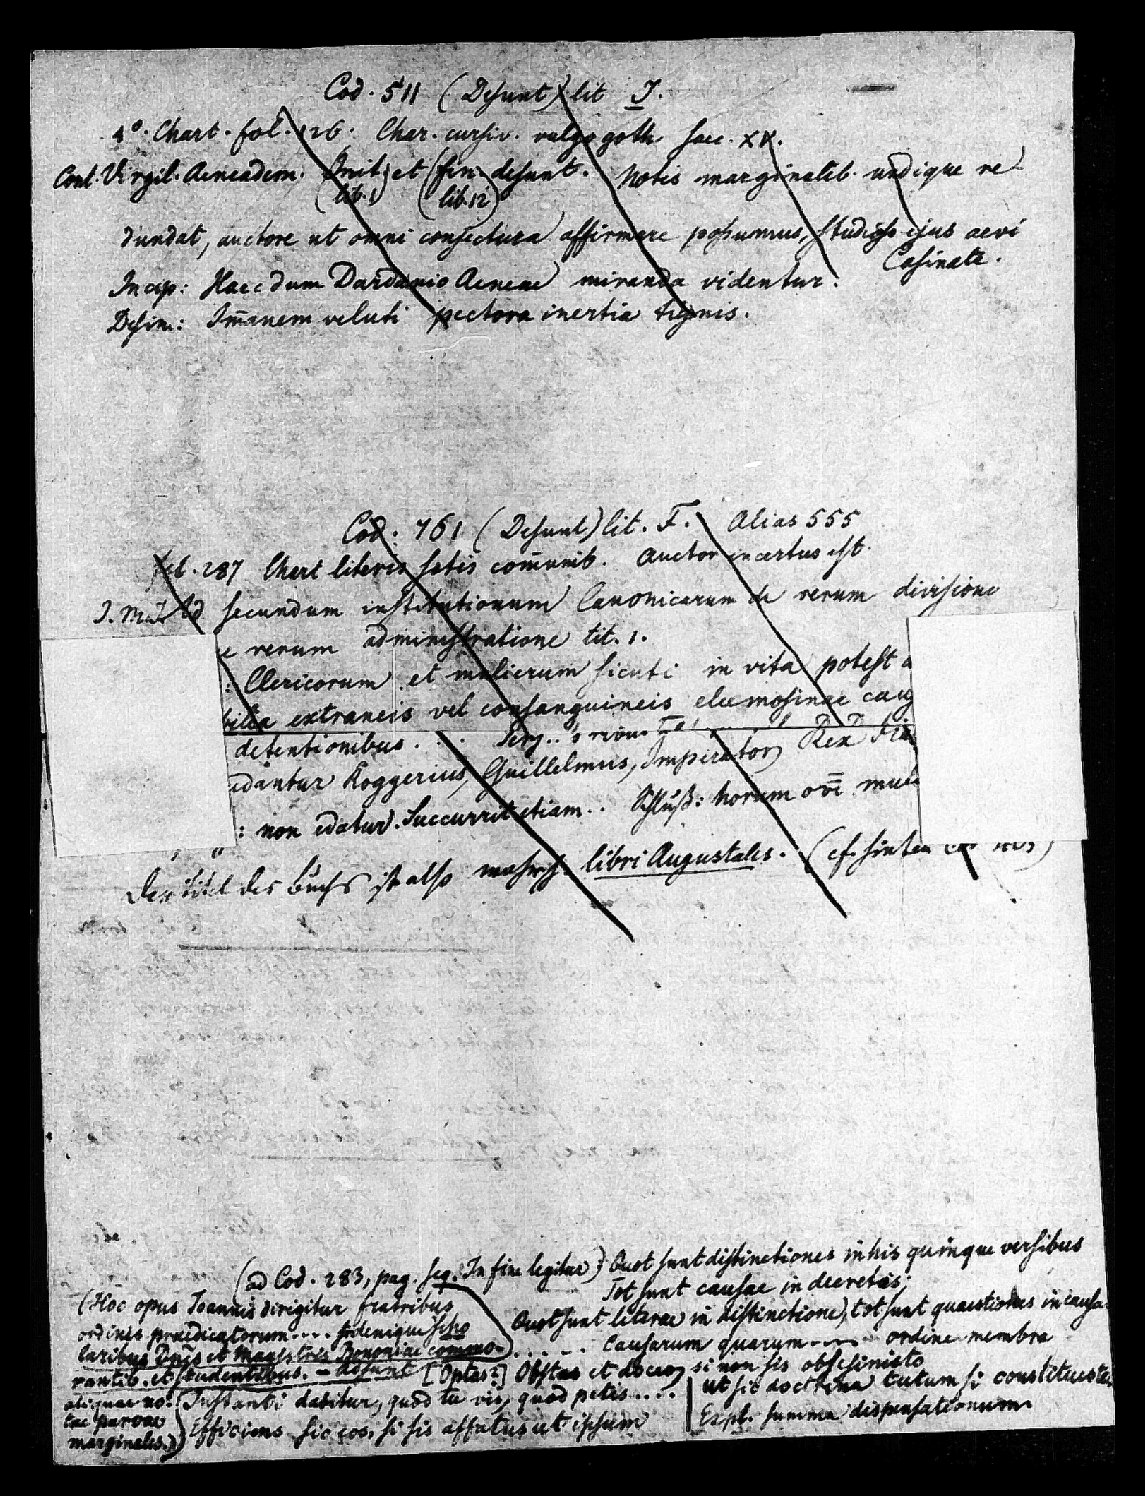 Cod. 511 (Desunt) lit I.
4º. Chart. fol. 126. Char. cursiv. vulgo goth saec. XV.
Cont. Virgil. Aeneadem. (Init. lib. 1) et (fin lib. 12) desunt. Notis marginalib. undique re
dundat, auctore ut omni conjectura affirmare possumus, studioso ejus aevi
Casinate.
Incip: Haec dum Dardanio Aeneae miranda videntur.
Desin: Im̄anem veluti pectora inertia tignis.
Cod. 761 (Desunt) lit. F. Alias 555
fol. 287 Chart literis satis com̄unib. Auctor incertus est.
secundum institutionum Canonicarum de rerum divisione
e rerum administratione tit. 1.
: Clericorum et mulierum sicuti in vita potest
bilia extraneis vel consanguineis eleemosinae cau
detentionibus . . .
dantur Roggerius, Guillelmus, Imperator, Rex
: non datur. Succurrit etiam . . Schluß: horum
Der Titel des Buchs ist also wahrsch. libri Augustales. (cf.
(ad Cod. 283, pag. seq. In fine legitur) Quot sunt distinctiones in his quinque versibus
Tot sunt causae in decretis:
(Hoc opus Joannis dirigitur fratribus
Quot sunt literae in distinctione, tot sunt quaestiones in causa.
ordinis praedicatorum . . . . & denique scho
Causarum quarum . . . . ordine membra
laribus Dn̄is et Magistris Bononiae commo-
rantib. et studentibus. – desunt [Optas?] Obstas et doceo, si non sis obses inisto
aliquae no- Instanti dabitur, quod tu vis, quod petis . . . . ut sit doctrina tutum si
tae parvae
Efficiens sic eos, si sis affatus ut ipsum Expl. summa dispensationum.
marginales.)